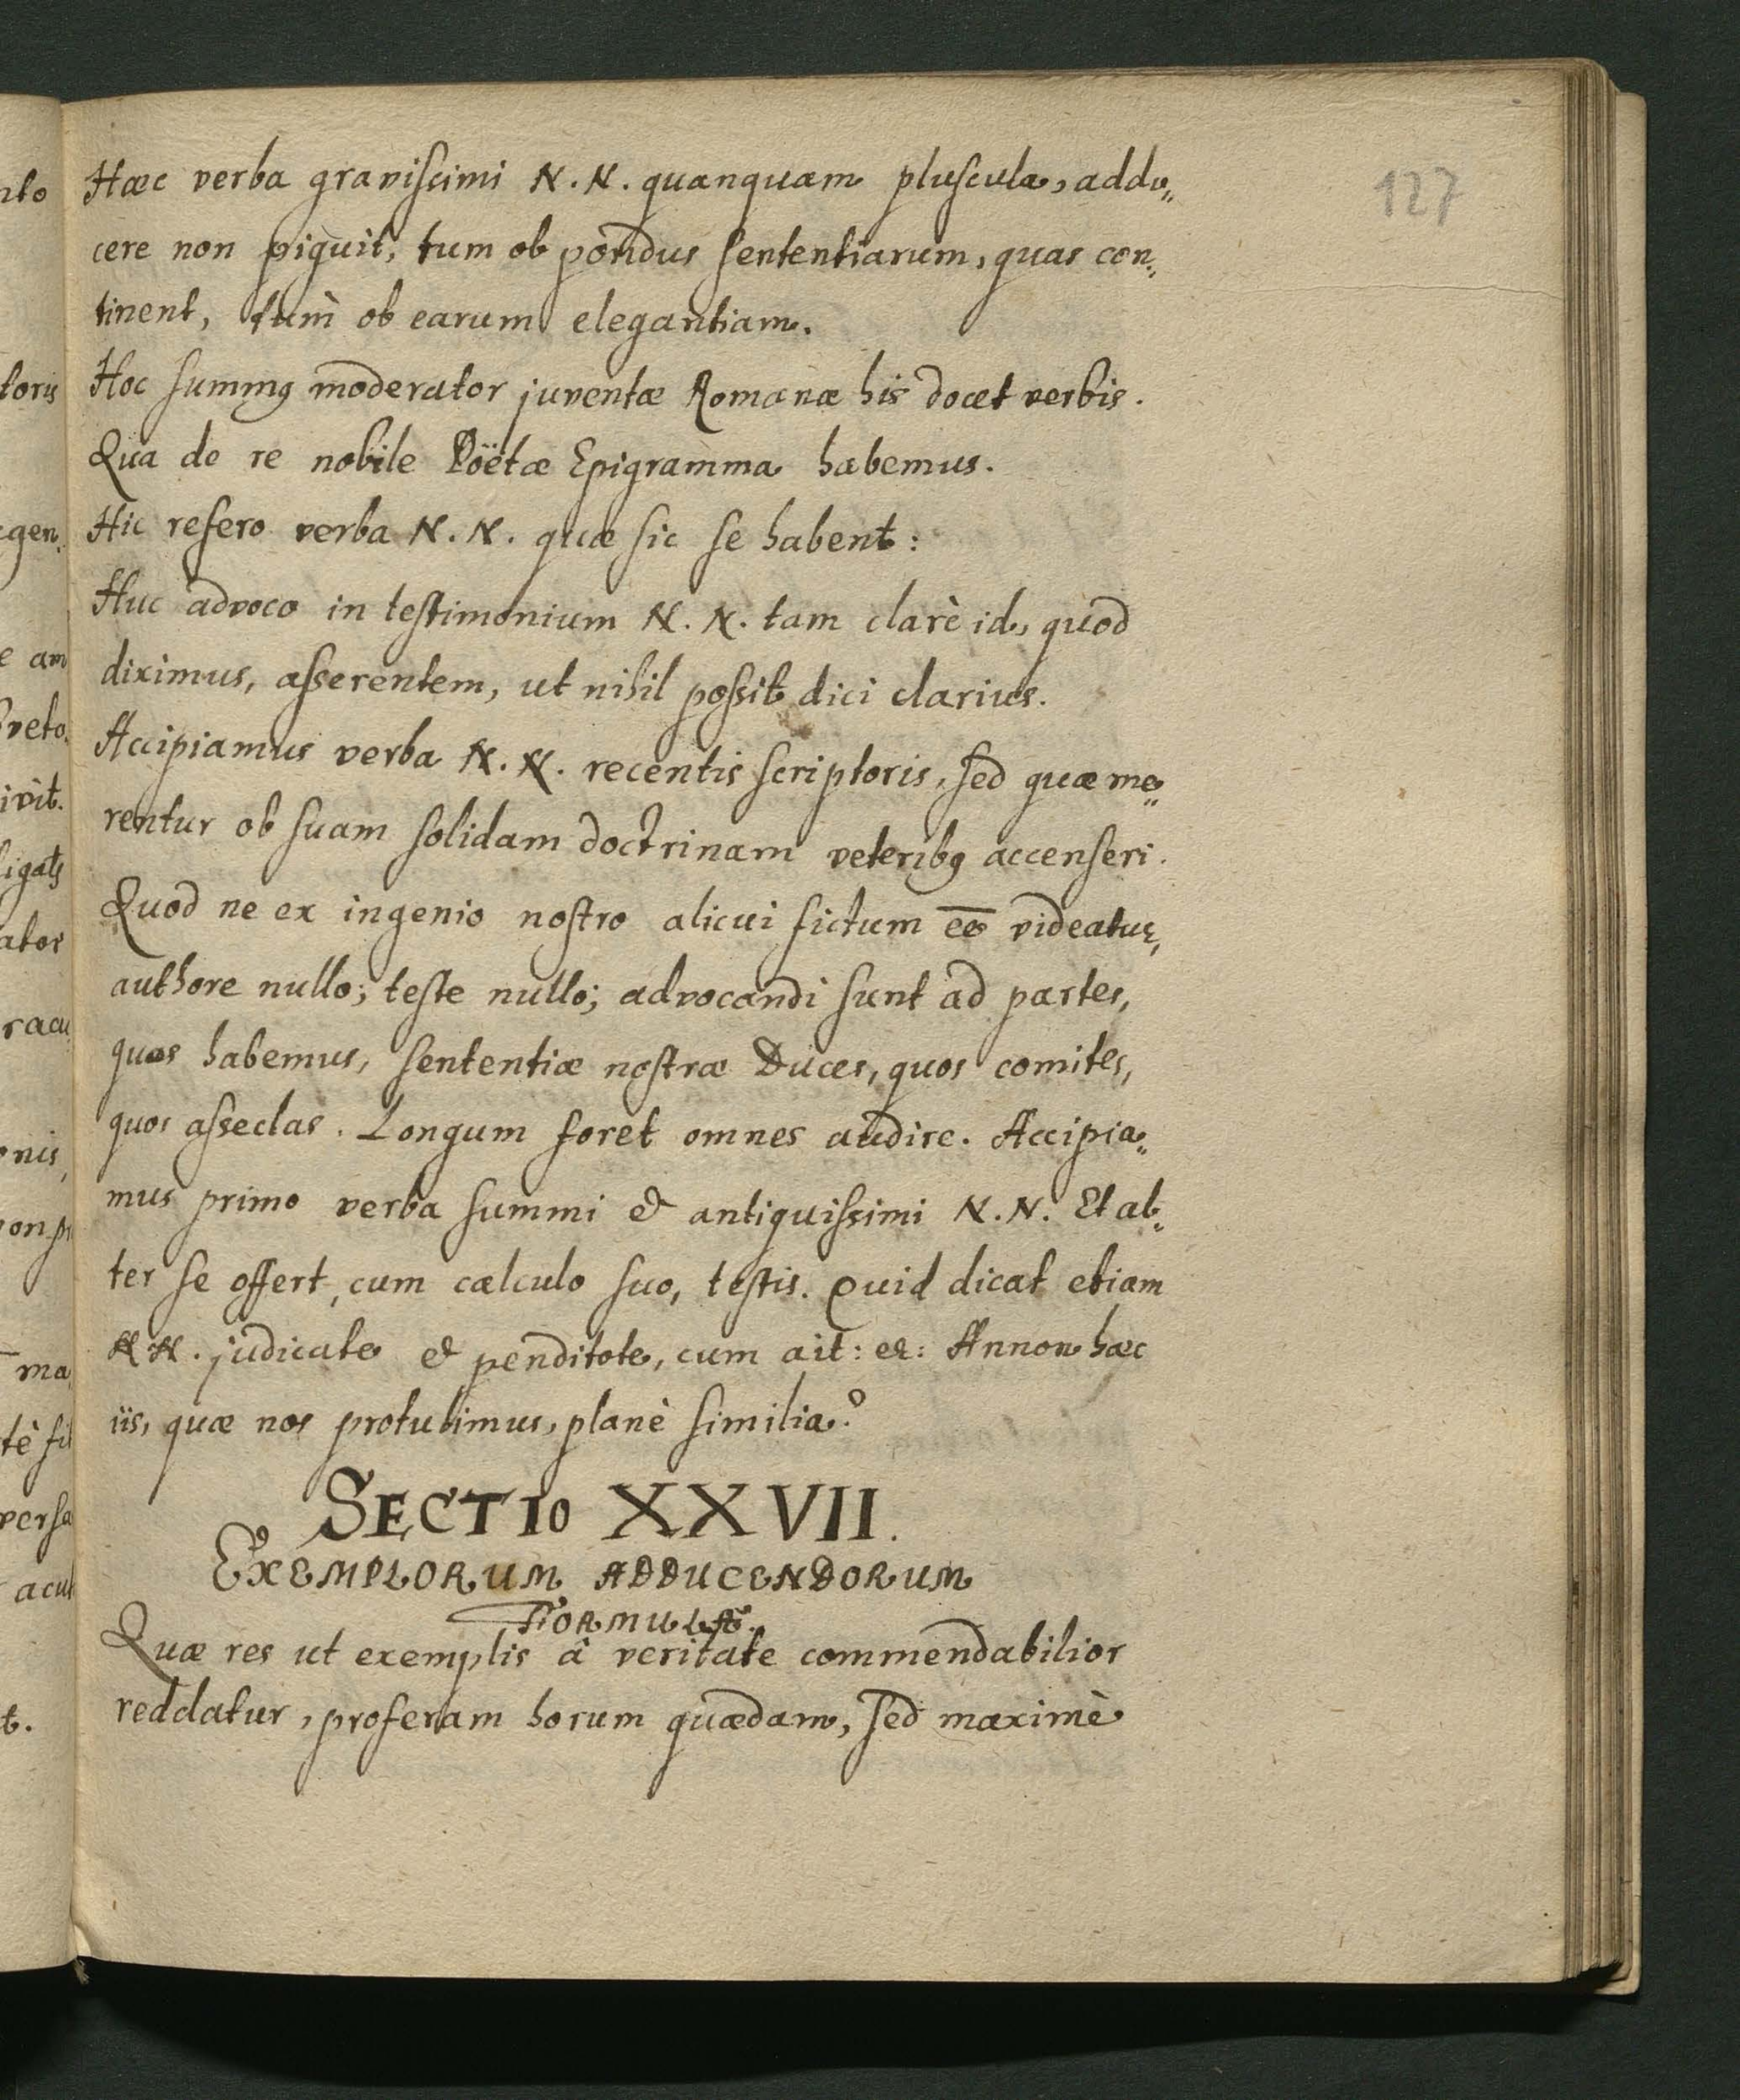 127
Hæc verba gravissimi N.N. quanquam pluscula, addu„
cere non piguit, tum ob pondus sententiarum, quas con„
tinent, tum ob earum elegantiam.
Hoc summꝰ moderator juventæ Romanæ his docet verbis.
Qua de re nobile Poëtæ Epigramma habemus.
Hic refero verba N.N. quæ sic se habent:
Huc advoco in testimonium N.N. tam clarè id, quod
diximus, asserentem, ut nihil possit dici clarius.
Accipiamus verba N.N. recentis scriptoris, sed quæ me„
rentur ob suam solidam doctrinam veteribꝰ accenseri.
Quod ne ex ingenio nostro alicui fictum ee̅ videatur,
authore nullo; teste nullo; advocandi sunt ad partes,
quos habemus, sententiæ nostræ Duces, quos comites,
quos asseclas. Longum foret omnes audire. Accipia„
mus primo verba summi & antiquissimi N.N. Et al„
ter se offert, cum calculo suo, testis. Quid dicat etiam
N.N. judicate & penditote, cum ait: &: Annon hæc
iis, quæ nos protulimus, planè similia?
SECTIO XXVII.
EXEMPLORUM ADDUCENDORUM
FORMULÆ.
Quæ res ut exemplis â veritate commendabilior
reddatur, proferam horum quædam, sed maximè